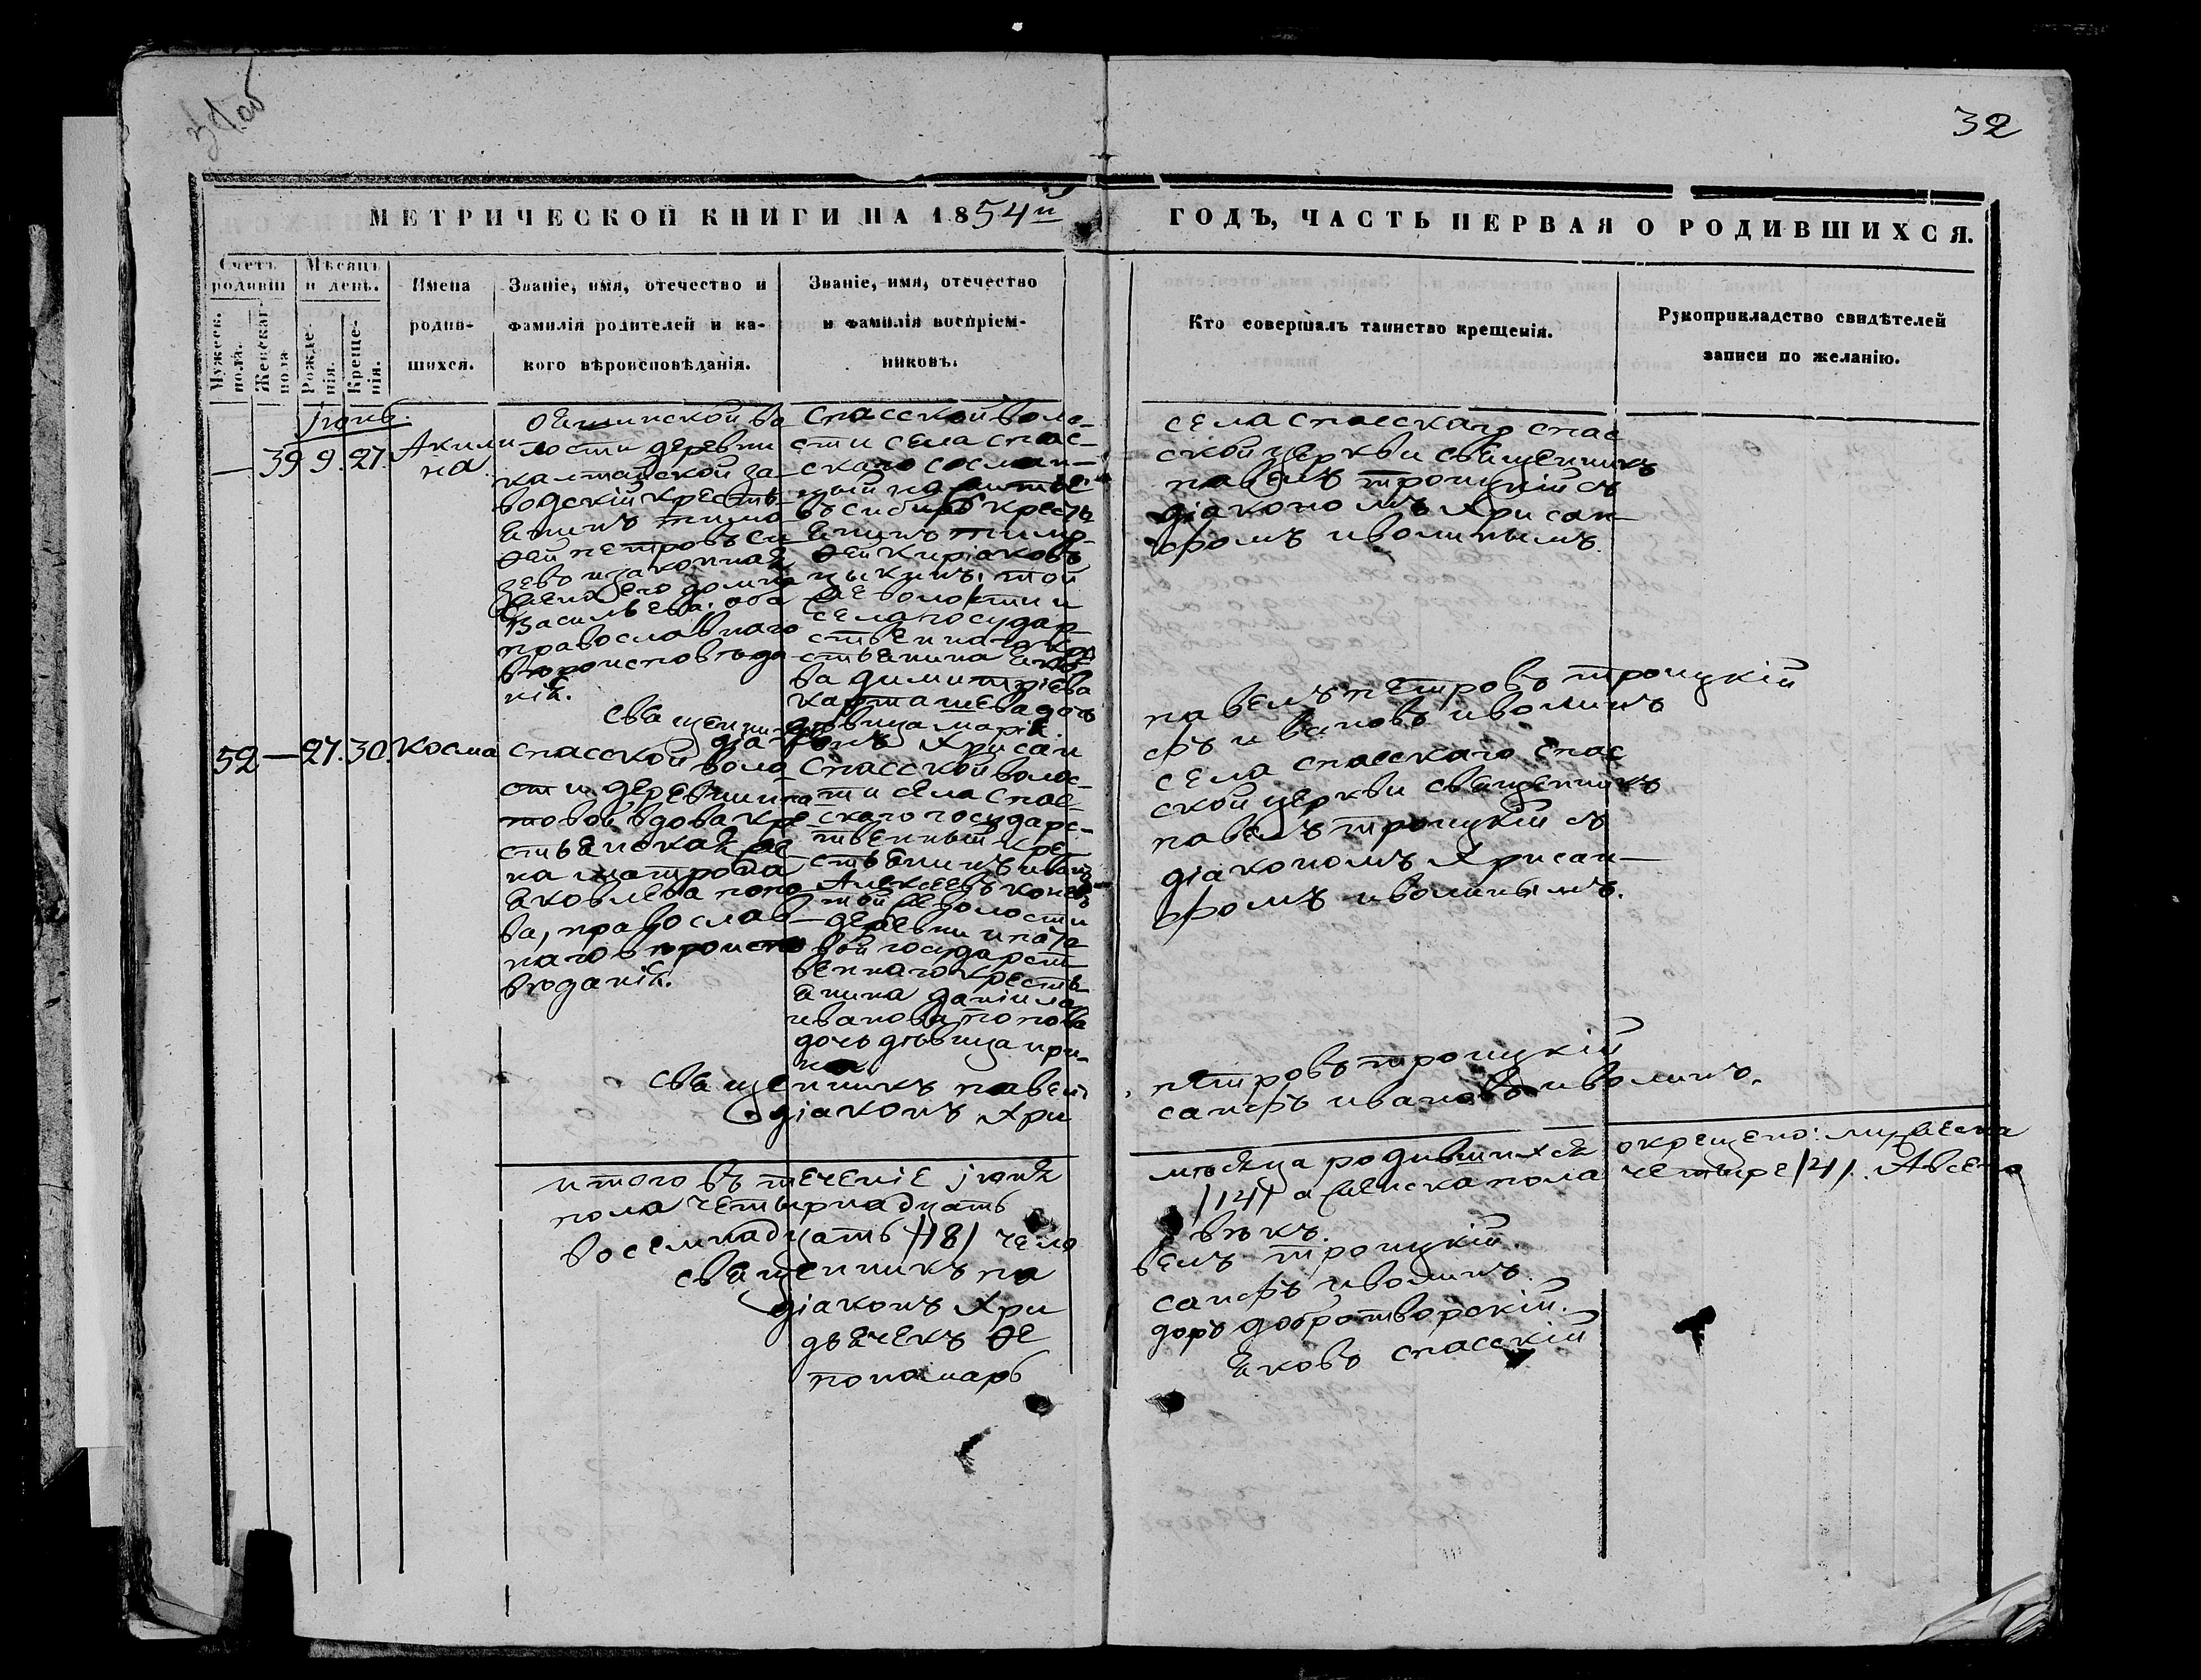 32
МЕТРИЧЕСКОЙ КНИГИ НА 1854й
ГОДЪ, ЧАСТЬ ПЕРВАЯ О РОДИВШИХСЯ.
Счетъ родивш
Мужеск. пола.
Женскаг. пола
Мѣсяцъ и день.
Рожде-нія.
Креще-нія.
Имена
родив-
шихся.
Званіе, имя, отечество и
фамилія родителей и ка-
кого вѣроисповѣданія.
Званіе, имя, отечество
и фамилія воспріем-
никовъ.
Кто совершалъ таинство крещенія.
Рукоприкладство свидѣтелей
записи по желанію.
іюнь.
— 39 9. 27.
Акили
на.
лости деревни
калтайской за-
водскій кресть
янинъ тимо
ѳей петровъ
и законная
жена его домна
Васильева. оба
православнаго
вѣроисповѣда
нія.
Спасской воло-
сти села спас-
скаго сослан-
ный на житье
въ сибирь кресть
янинъ тимо-
ѳей Киріаковъ
той
же волости и
села государ
ственнаго кре
стьянина яко
ва димитріева
карташева дочь
дѣвица марія.
села спасскаго спас
ской церкви священникъ
павелъ троицкій съ
діакономъ Хрисан-
фомъ иволинымъ.
священникъ павелъ петровъ троицкій
діаконъ Хрисанфъ ивановъ иволинъ
52 — 27. 30. Косма
спасской воло
сти деревни ипа
товой вдова кре
стьянская же
на матрона
яковлева попо
ва, православ
наго вѣроиспо
вѣданія.
Спасской волос-
ти села спас-
скаго государс-
твенный кре
стьянинъ иванъ
Алексеевъ коневъ
той же волости
деревни ипато
вой государст
веннаго кресть
янина даніила
иванова попова
дочь дѣвица ири-
на
села спасскаго спас
ской церкви священникъ
павелъ троицкій съ
діакономъ Хрисан-
фомъ иволинымъ.
священникъ павелъ петровъ троицкій
діаконъ Хрисанфъ ивановъ иволинъ.
итого въ теченіе іюня мѣсяца родившихся окрещено: мужеска
пола четырнадцать /14/ а женска пола четыре /4/. А всего
восемнадцать /18/ чело вѣкъ.
священникъ павелъ троицкій.
діаконъ Хрисанфъ иволинъ.
дьячекъ Ѳедоръ добротворскій.
пономарь яковъ спасскій